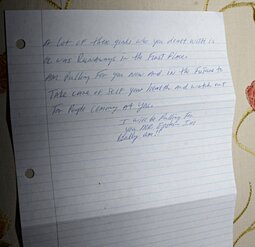 A lot of these girls who you dealt with is
or was Runaways in the First Place.
Am Pulling For you Now And in the Future to
Take care of self your Health and watch out
For People coming at you.
I will be Pulling For
you MR Epstein I am
Really am!